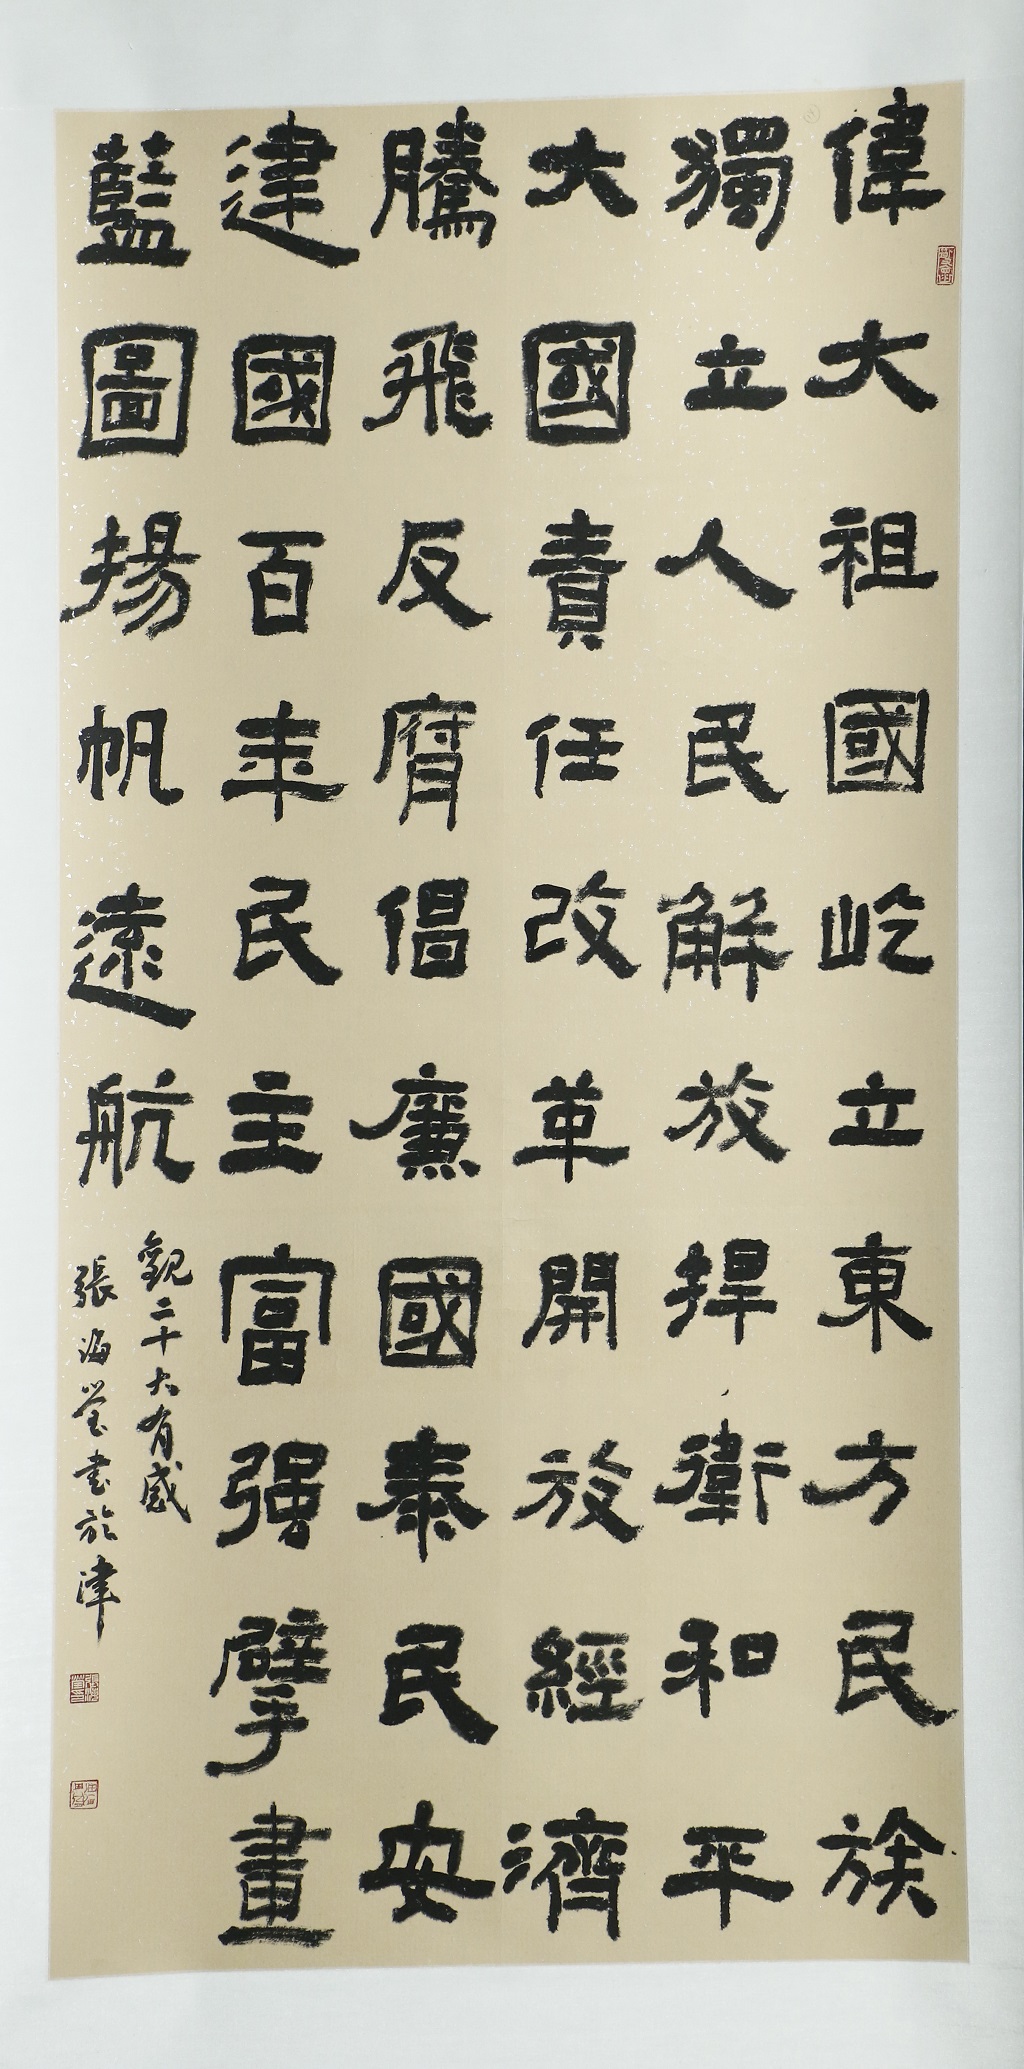 偉大祖國屹立東方民族
獨立人民解放捍衛和平
大國責任改革開放經濟
騰飛反腐倡廉國泰民安
建國百年民主富强擘畫
藍圖揚帆遠航
觀二十大有感
張海瑩書於津